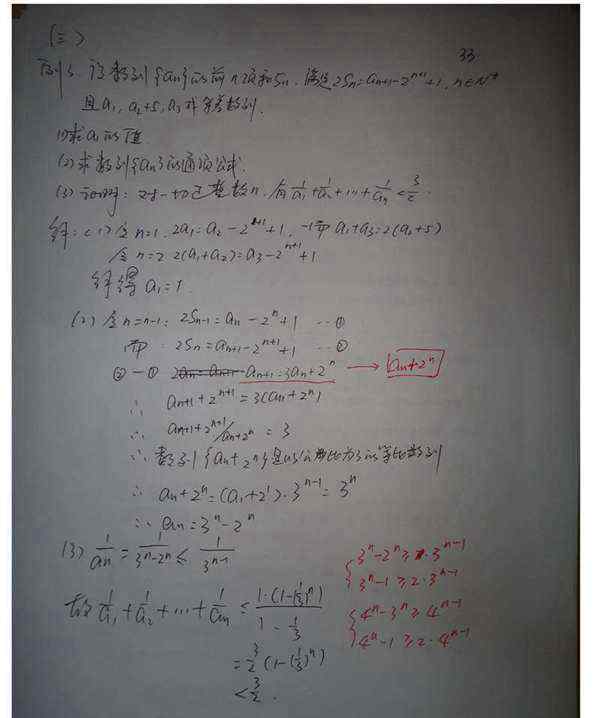 (三)
33
例3. 设数列{an}的前n项和Sn. 满足2Sn=an+1-2ⁿ⁺¹+1, n∈N*
且a₁, a₂+5, a₃成等差数列.
(1)求a₁的值
(2)求数列{an}的通项公式.
(3)证明: 对一切正整数n, 有1/a₁+1/a₂+…+1/an<3/2.
解: (1)令n=1, 2a₁=a₂-2ⁿ⁺¹+1, 而a₁+a₃=2(a₂+5)
令n=2 2(a₁+a₂)=a₃-2ⁿ⁺¹+1
解得a₁=1.
(2)令n=n-1: 2Sn-1=an-2ⁿ+1 …①
而: 2Sn=an+1-2ⁿ⁺¹+1 …②
②-① 2an=an+1 an+1=3an+2ⁿ → an+2ⁿ
∴ an+1+2ⁿ⁺¹=3(an+2ⁿ)
∴ an+1+2ⁿ⁺¹/an+2ⁿ=3
∴ 数列{an+2ⁿ}是以公比为3的等比数列
∴ an+2ⁿ=(a₁+2¹)·3ⁿ⁻¹=3ⁿ
∴ an=3ⁿ-2ⁿ
(3) 1/an=1/3ⁿ-2ⁿ≤1/3ⁿ⁻¹
故1/a₁+1/a₂+…+1/an≤1·(1-(1/3)ⁿ)/1-1/3
=3/2(1-(1/3)ⁿ)
<3/2.
3ⁿ-2ⁿ≥·3ⁿ⁻¹
3ⁿ-1≥2·3ⁿ⁻¹
4ⁿ-3ⁿ≥4ⁿ⁻¹
4ⁿ-1≥2·4ⁿ⁻¹